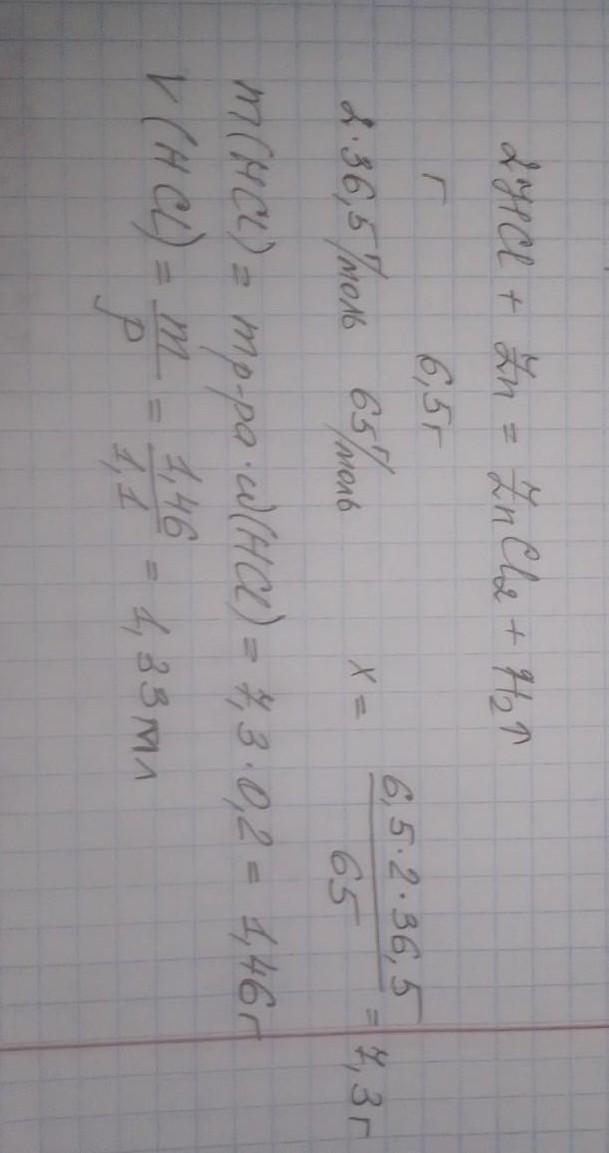 2HCl + Zn = ZnCl₂ + H₂↑
г 6,5г
2·36,5 г/моль 65 г/моль x = 6,5·2·36,5 / 65 = 7,3г
m(HCl) = mр-ра·ω(HCl) = 7,3·0,2 = 1,46г
V(HCl) = m/ρ = 1,46/1,1 = 1,33мл